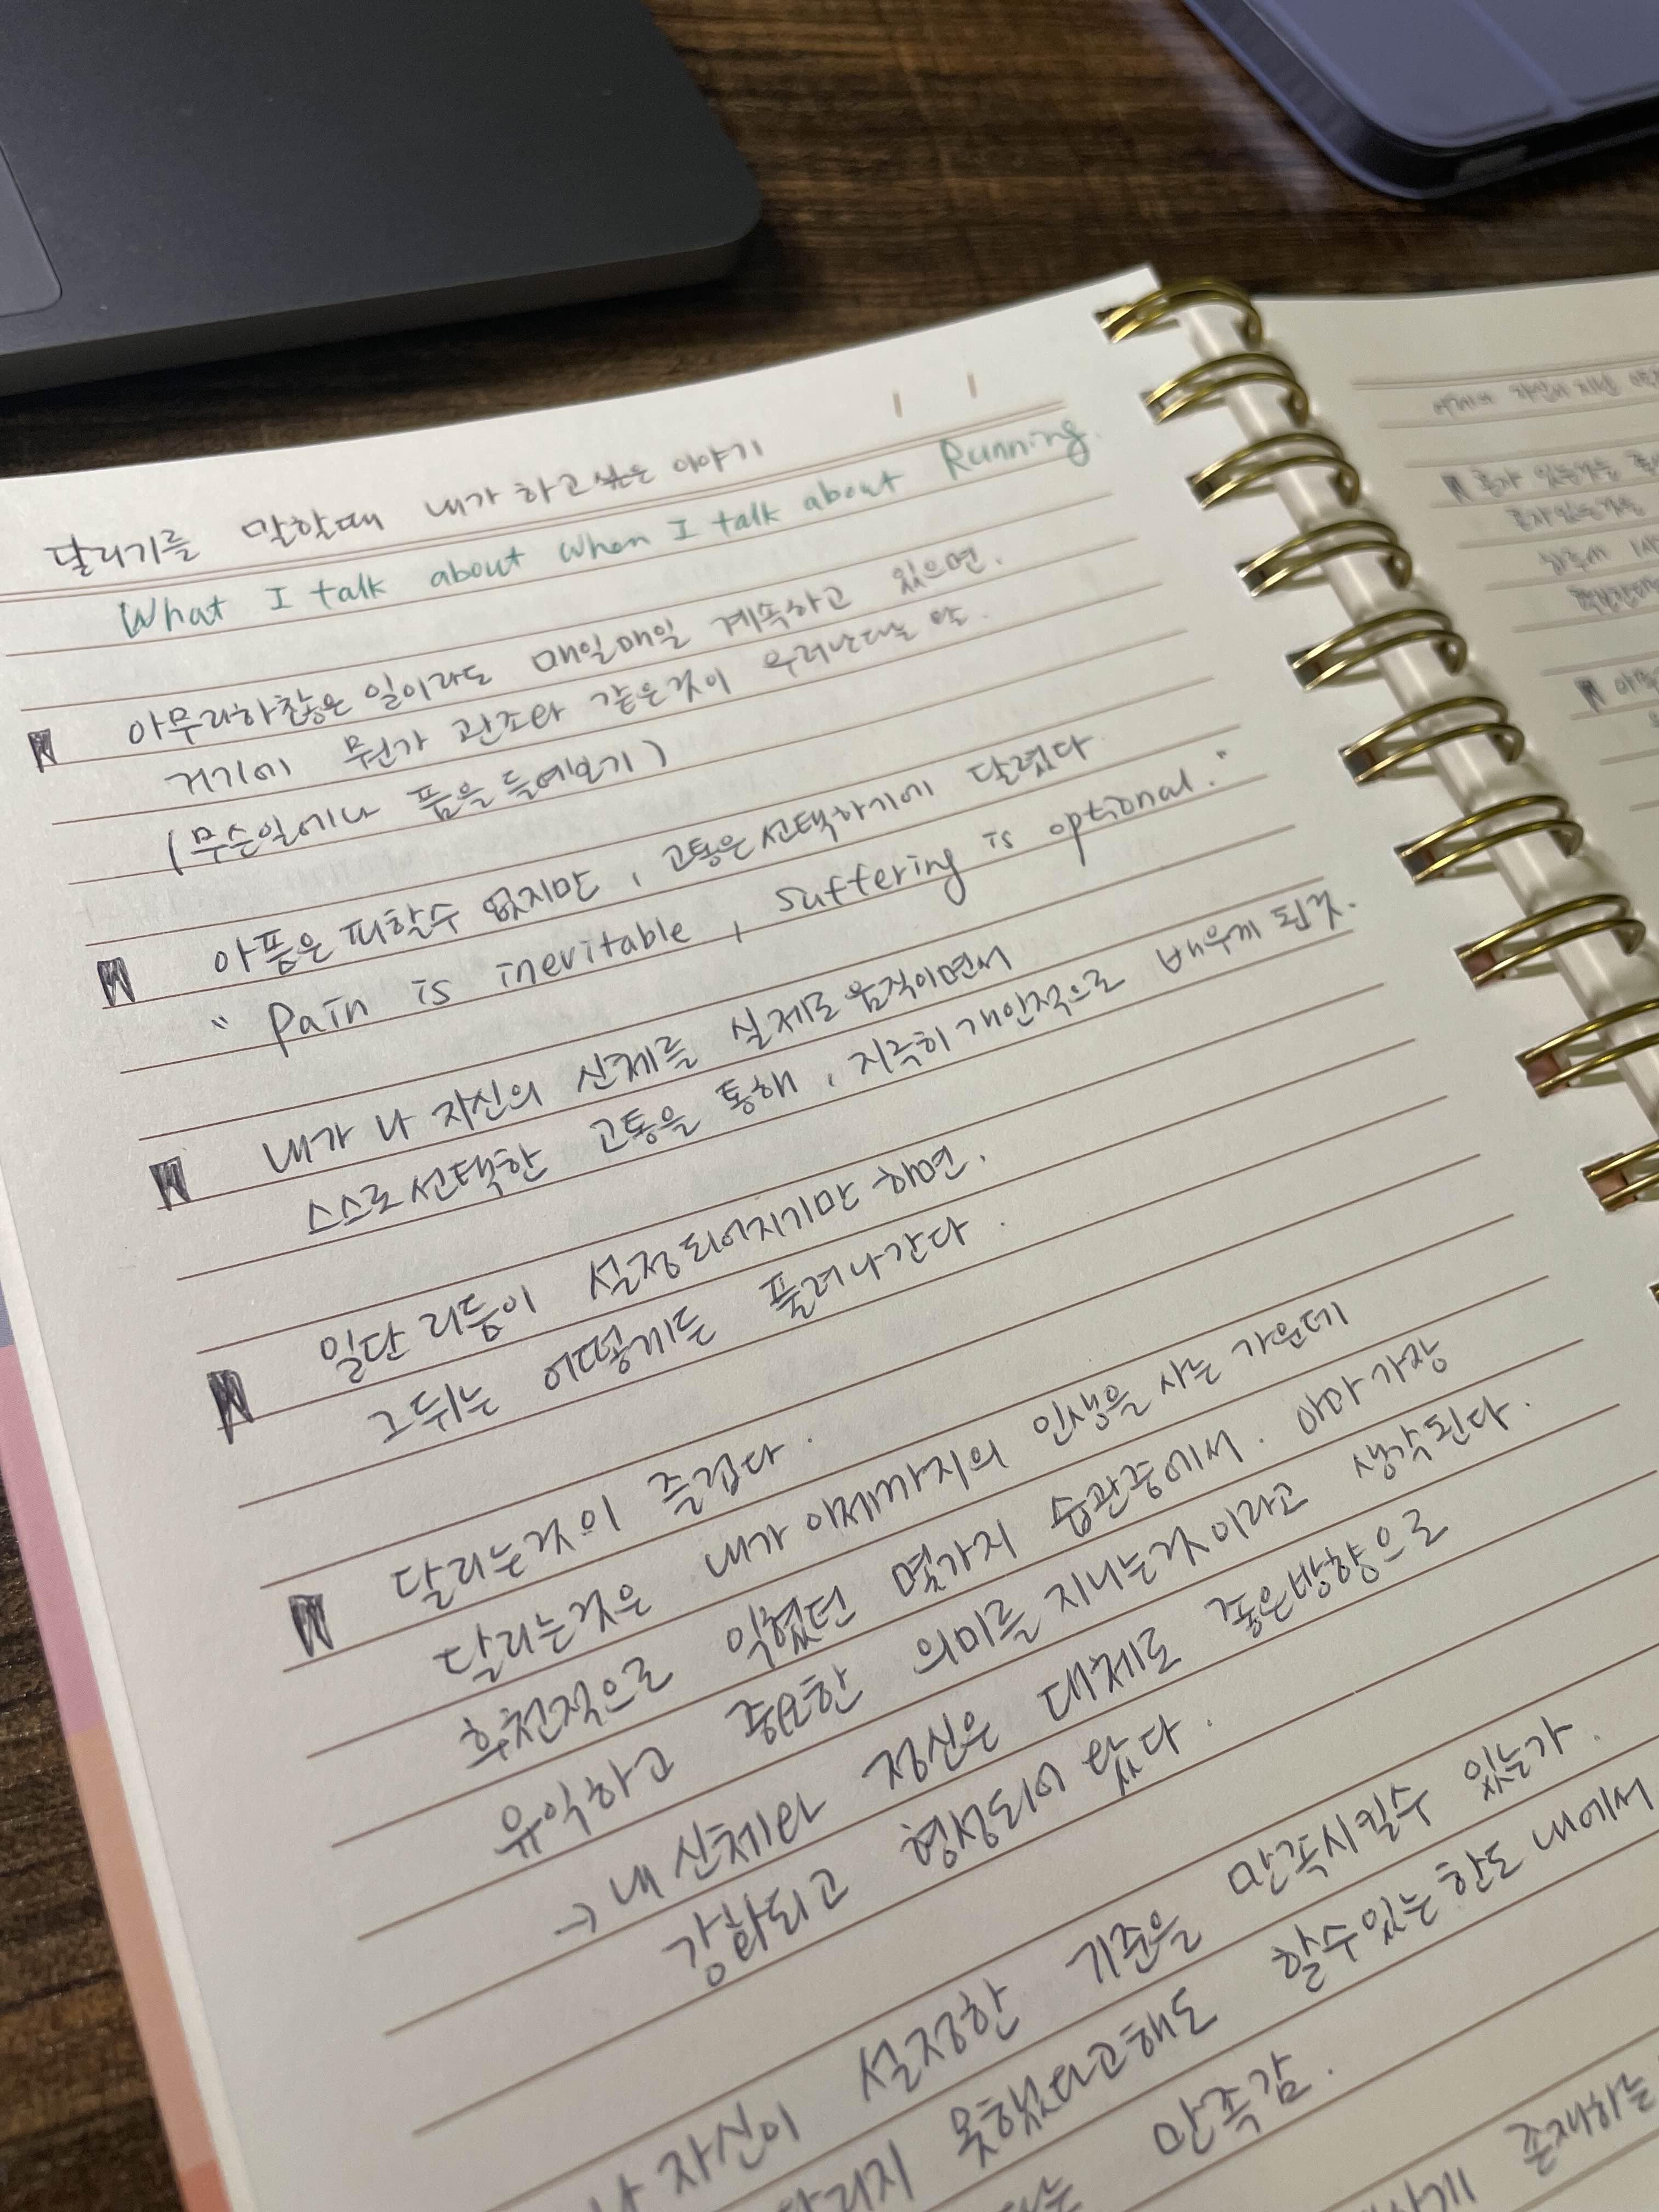 달리기를 말할때 내가 하고싶은 이야기
What I talk about when I talk about Running.
아무리하찮은 일이라도 매일매일 계속하고 있으면.
거기에 뭔가 관조와 같은것이 우러난다는 말.
(무슨일에나 품을 들여보기)
아픔은 피할수 없지만, 고통은 선택하기에 달렸다
"Pain is inevitable, suffering is optional."
내가 나 자신의 신체를 실제로 움직이면서
스스로 선택한 고통을 통해, 지극히 개인적으로 배우게 된것.
일단 리듬이 설정되어지기만 하면.
그뒤는 어떻게든 풀려나간다.
달리는것이 즐겁다.
달리는것은 내가 이제까지의 인생을 사는 가운데
후천적으로 익혔던 몇가지 습관중에서. 아마 가장
유익하고 중요한 의미를 지니는것이라고 생각된다.
→ 내 신체와 정신은 대체로 좋은방향으로
강화되고 형성되어 왔다.
나 자신이 설정한 기준을 만족시킬수 있는가.
달리지 못했다고해도 할수있는 한도 내에서
만족감.
존재하는